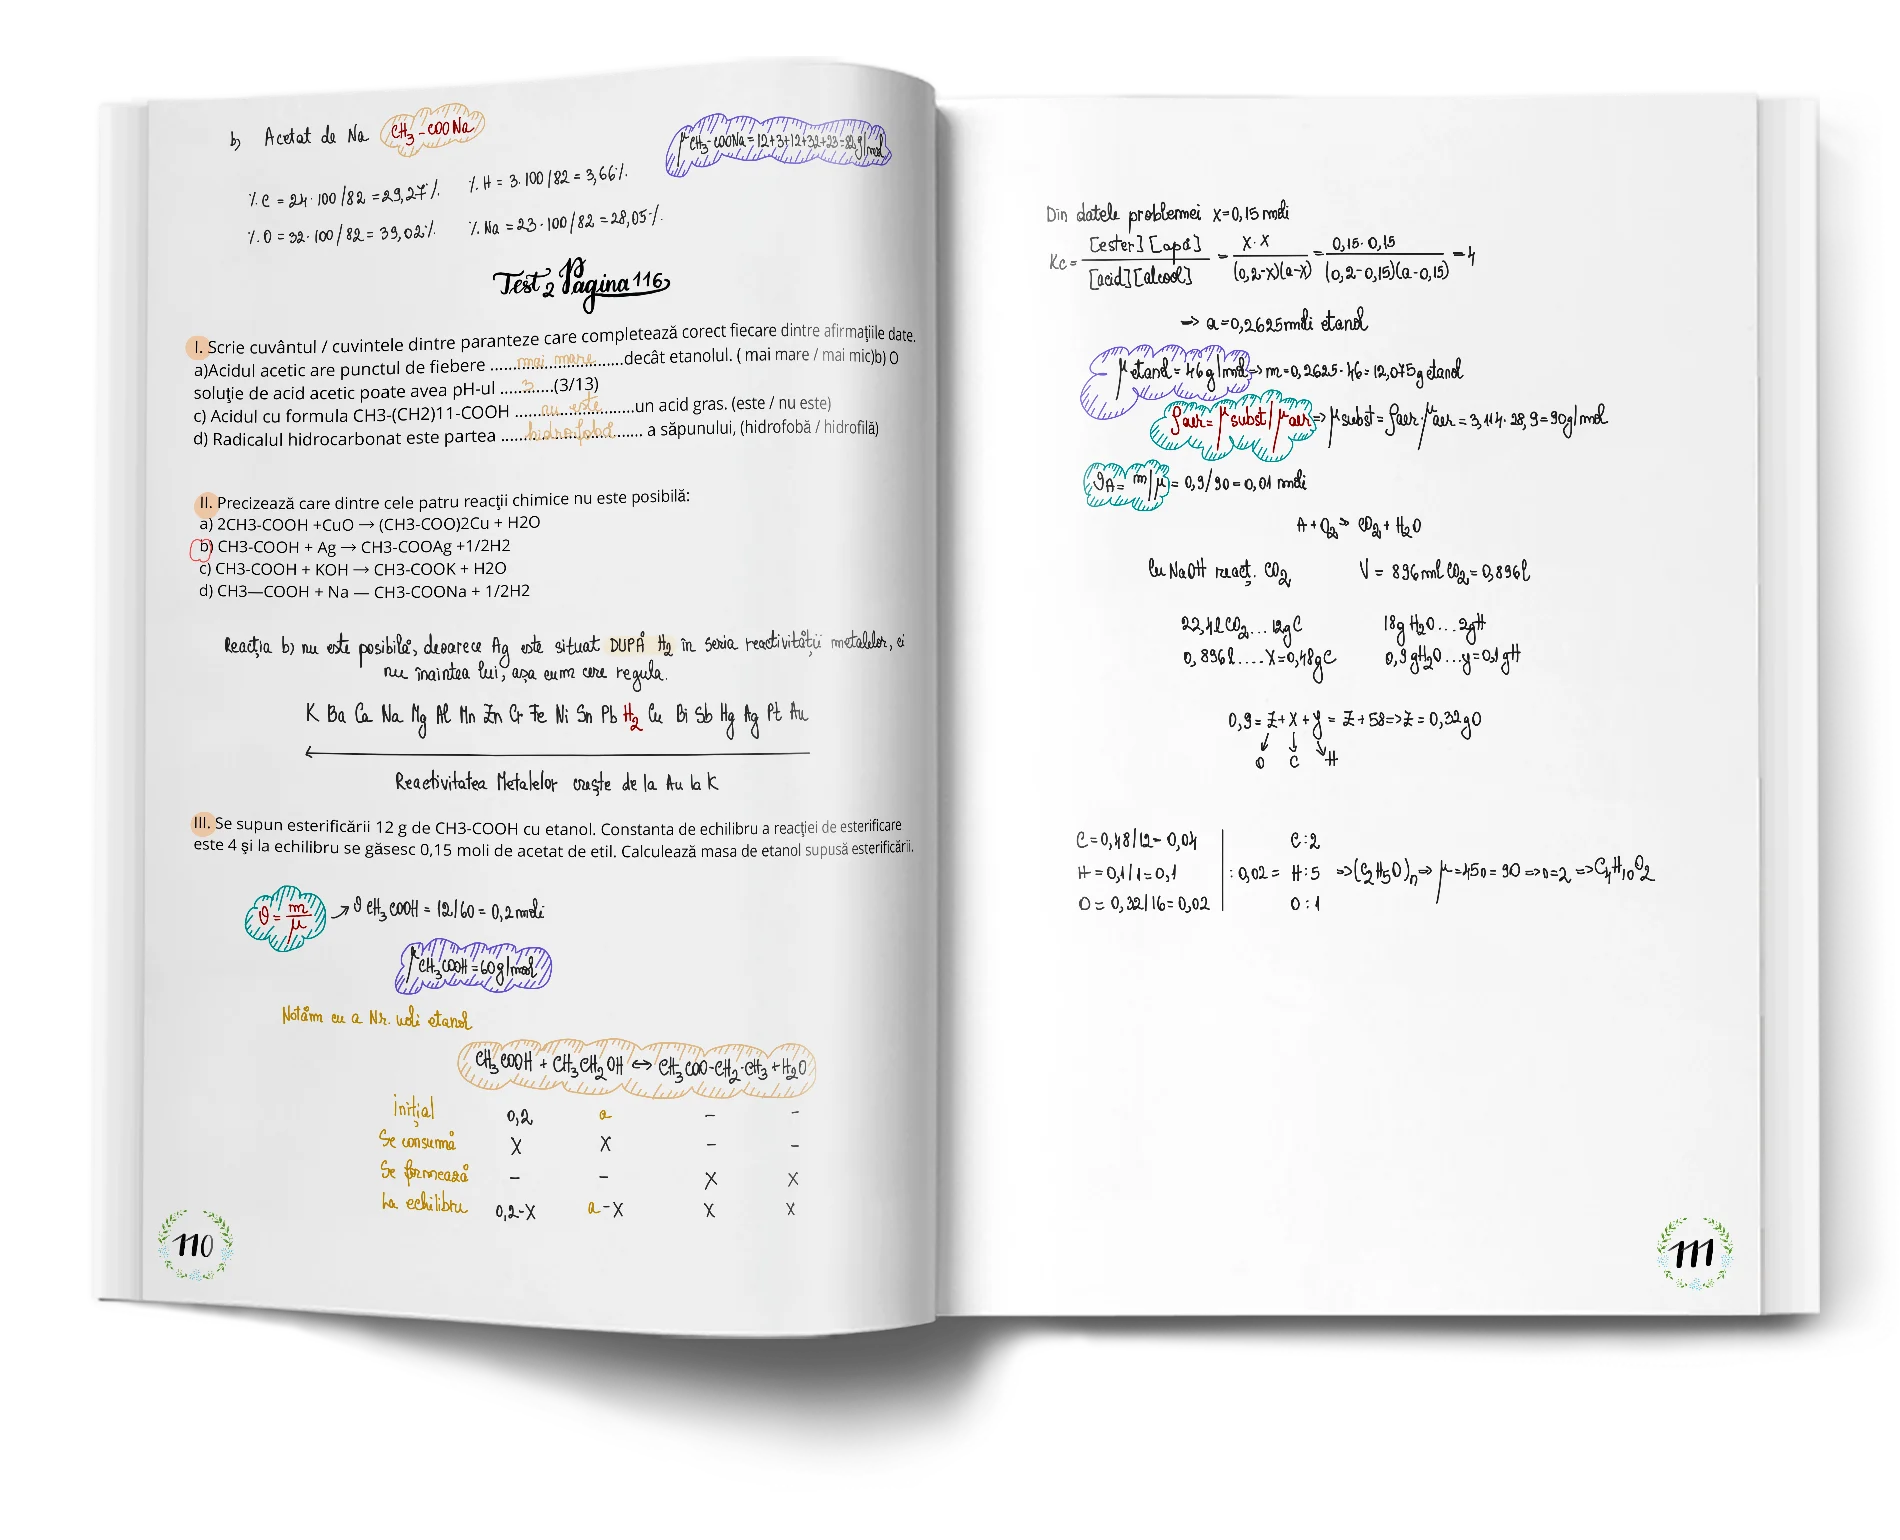 b) Acetat de Na CH3-COONa
μ CH3-COONa = 12+3+12+32+23 = 82g/mol
% C = 24·100/82 = 29,27%. % H = 3·100/82 = 3,66%.
% O = 32·100/82 = 39,02%. % Na = 23·100/82 = 28,05%.
Test 2 Pagina 116
I. Scrie cuvântul / cuvintele dintre paranteze care completează corect fiecare dintre afirmațiile date.
a)Acidul acetic are punctul de fiebere ...... mai mare ..............decât etanolul. ( mai mare / mai mic)b) O
soluție de acid acetic poate avea pH-ul .....3.....(3/13)
c) Acidul cu formula CH3-(CH2)11-COOH ......nu este.............un acid gras. (este / nu este)
d) Radicalul hidrocarbonat este partea ......hidrofobă...... a săpunului, (hidrofobă / hidrofilă)
II. Precizează care dintre cele patru reacții chimice nu este posibilă:
a) 2CH3-COOH +CuO → (CH3-COO)2Cu + H2O
b) CH3-COOH + Ag → CH3-COOAg +1/2H2
c) CH3-COOH + KOH → CH3-COOK + H2O
d) CH3—COOH + Na — CH3-COONa + 1/2H2
Reacția b) nu este posibilă, deoarece Ag este situat DUPĂ H2 în seria reactivității metalelor, ci
nu înaintea lui, așa cum cere regula.
K Ba Ca Na Mg Al Mn Zn Cr Fe Ni Sn Pb H2 Cu Bi Sb Hg Ag Pt Au
Reactivitatea Metalelor crește de la Au la K
III. Se supun esterificării 12 g de CH3-COOH cu etanol. Constanta de echilibru a reacției de esterificare
este 4 și la echilibru se găsesc 0,15 moli de acetat de etil. Calculează masa de etanol supusă esterificării.
ϑ = m/μ → ϑ CH3COOH = 12/60 = 0,2 moli
μ CH3COOH = 60g/mol
Notăm cu a Nr. moli etanol
CH3COOH + CH3CH2OH ↔ CH3COO-CH2-CH3 + H2O
Inițial 0,2 a - -
Se consumă X X - -
Se formează - - X X
La echilibru 0,2-X a-X X X
110
Din datele problemei X=0,15 moli
Kc = [ester][apă]/[acid][alcool] = X·X/(0,2-X)(a-X) = 0,15·0,15/(0,2-0,15)(a-0,15) = 4
→ a=0,2625 moli etanol
μ etanol = 46g/mol → m=0,2625·46=12,075g etanol
ρaer = μ subst/μ aer => μ subst = ρaer·μaer = 3,114·28,9=90g/mol
ϑA = m/μ = 0,9/90 = 0,01 moli
A + O2 → CO2 + H2O
Cu NaOH react. CO2 V = 896 ml CO2 = 0,896l
22,4l CO2 ... 12gC 18g H2O ... 2gH
0,896l .... X=0,48gC 0,9 gH2O ... y=0,1 gH
0,9 = Z + X + y = Z + 58 => Z = 0,32gO
O C H
C = 0,48/12 = 0,04 C : 2
H = 0,1/1 = 0,1 : 0,02 = H : 5 => (C2H5O)n => μ = 45n = 90 => n=2 => C4H10O2
O = 0,32/16 = 0,02 O : 1
111